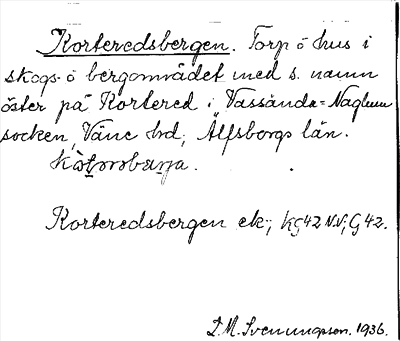 Korteredsbergen. Torp o hus i
skogs- o bergområdet med s. namn
öster på Kortered i Vassända-Naglum
socken, Väne hd, Älfsborgs län.
Korteredsbergen ek; KG42NV; G42.
D. M. Svenungsson. 1936.